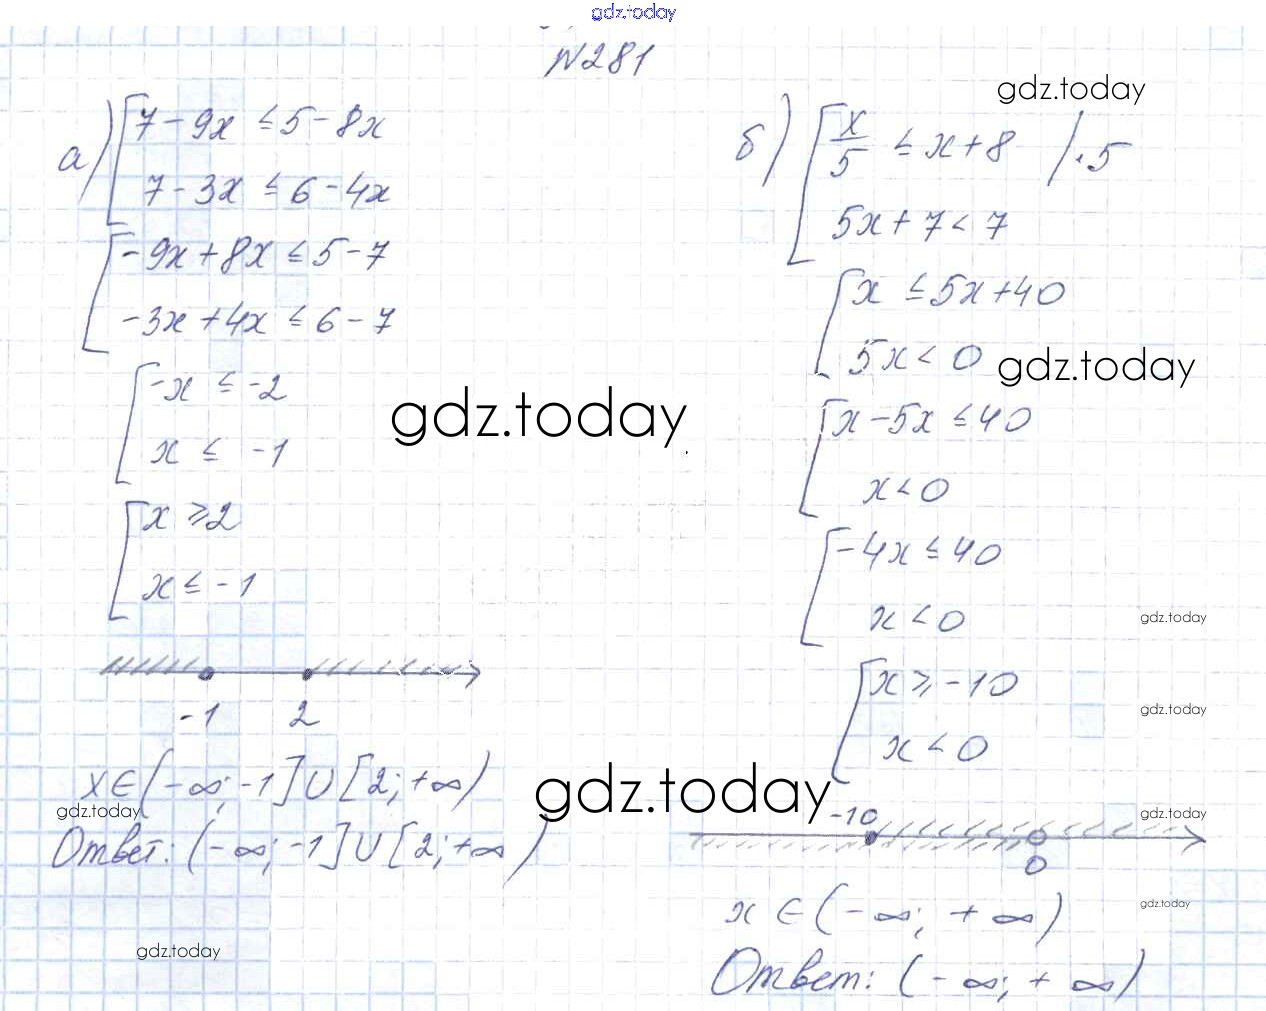 gdz.today
N281
gdz.today
а) [ 7 - 9x ≤ 5 - 8x
7 - 3x ≤ 6 - 4x
[ -9x + 8x ≤ 5 - 7
-3x + 4x ≤ 6 - 7
[ -x ≤ -2
x ≤ -1
gdz.today
[ x ≥ 2
x ≤ -1
-1 2
x ∈ (-∞; -1] ∪ [2; +∞)
gdz.today
Ответ: (-∞; -1] ∪ [2; +∞)
gdz.today
б) [ x/5 ≤ x + 8 / · 5
5x + 7 < 7
[ x ≤ 5x + 40
5x < 0
gdz.today
[ x - 5x ≤ 40
x < 0
[ -4x ≤ 40
x < 0
gdz.today
[ x ≥ -10
gdz.today
x < 0
gdz.today
-10
gdz.today
0
gdz.today
x ∈ (-∞; +∞)
Ответ: (-∞; +∞)